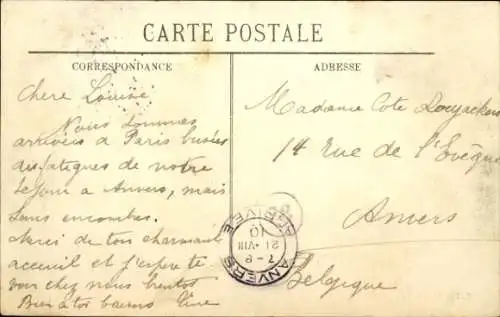 CARTE POSTALE
CORRESPONDANCE
ADRESSE
Chere Louise
Nous sommes
arrivées à Paris
de notre
séjour a Anvers, mais
sans encombre.
de ton charmant
acceuil et j'espere te
voir chez nous bientot
Bien à toi
Madame Cote
14 Rue de l'Evêque
Anvers
Belgique
ANVERS ARRIVEE
7-8
21 VIII
10